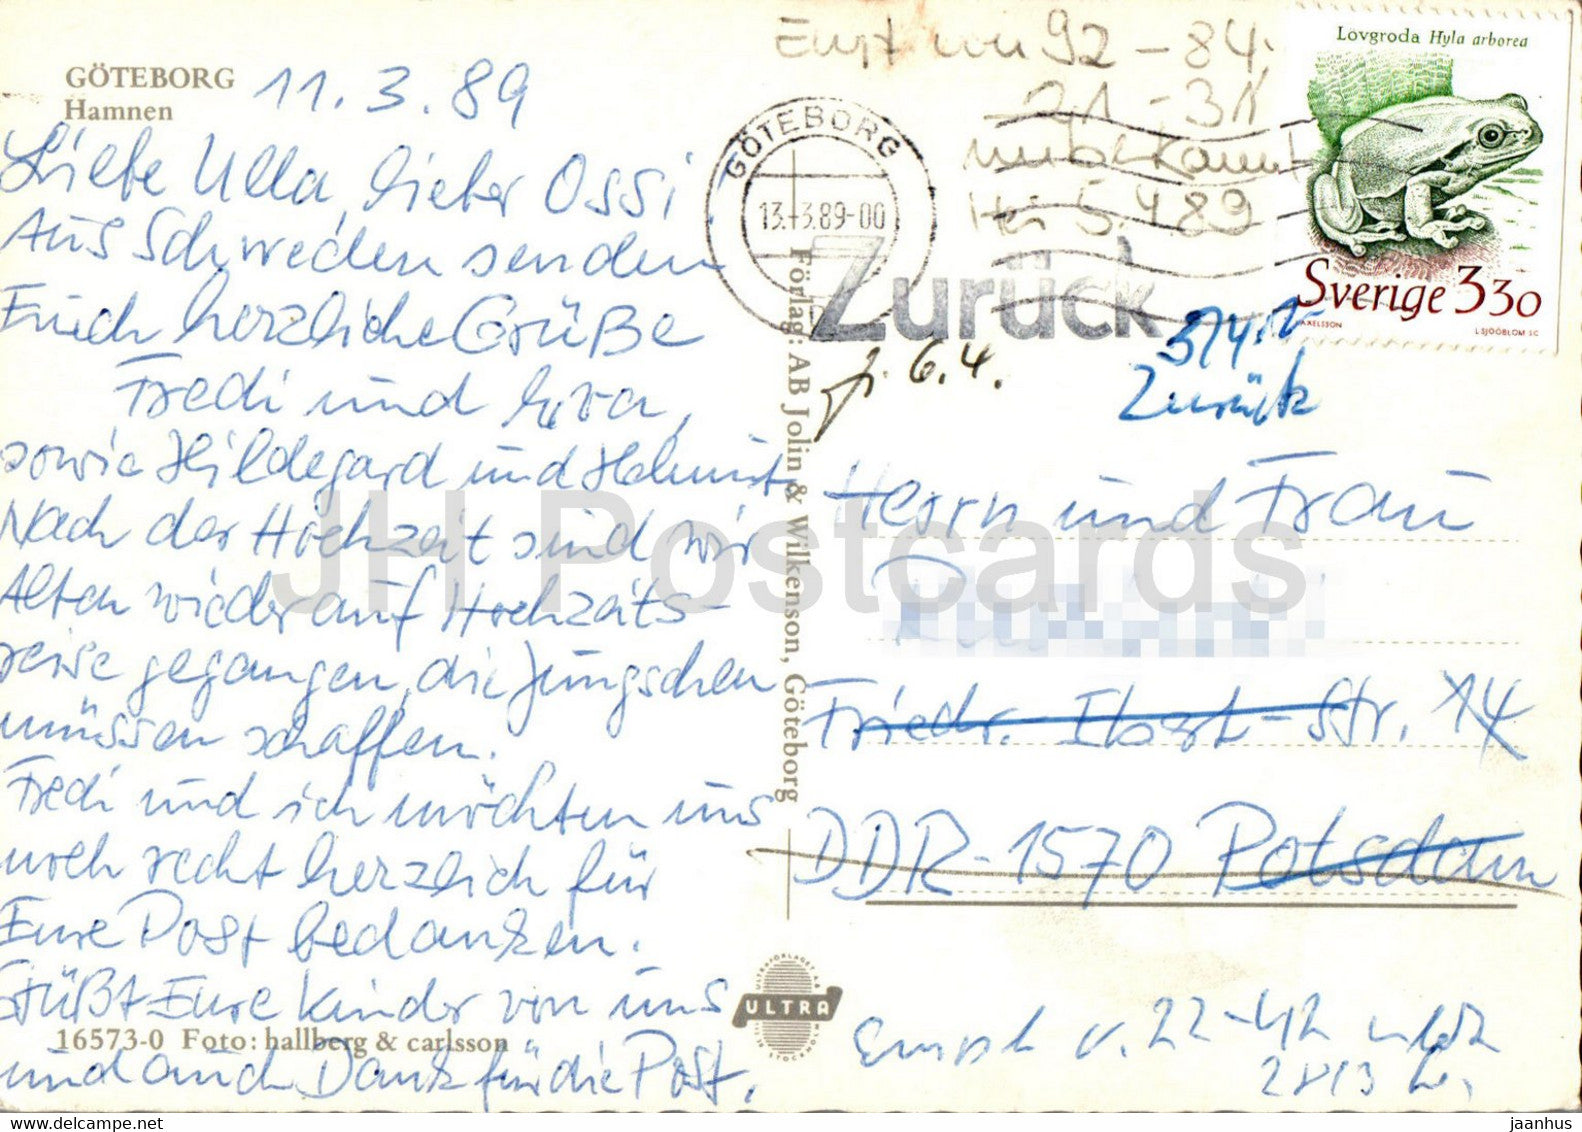 GÖTEBORG
Hamnen
11.3.89
Liebe Ulla, lieber Ossi,
Aus Schweden senden
Euch herzliche Grüße
Fredi und Eva,
sowie Hildegard und Helmut
Nach der Hochzeit sind wir
Alten wieder auf Hochzeits-
reise gegangen, die Jungschen
müssen schaffen.
Fredi und ich möchten uns
noch recht herzlich für
Eure Post bedanken.
Grüßt Eure Kinder von uns
und auch Dank für die Post.
16573-0 Foto: hallberg & carlsson
Förlag: AB Jolin & Wilkenson, Göteborg
ULTRA
Empf von 92-84.
21-31
unbekannt
5.4.89
GÖTEBORG
13.-3.89-00
Zurück
6.4.
Zurück
Lövgroda Hyla arborea
Sverige 330
AXELSSON
L SJÖÖBLOM SC
Herrn und Frau
Friedr. Ebert-Str. 14
DDR-1570 Potsdam
Empf v. 22-42
JH Postcards
jaanhus